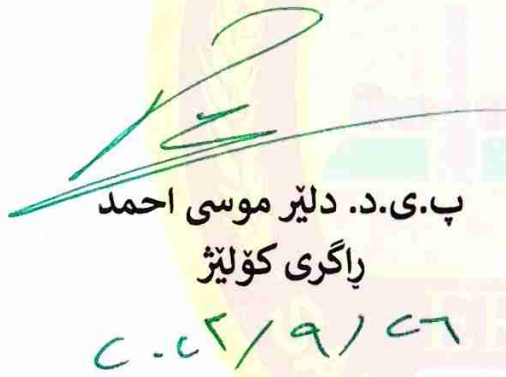 پ.ی.د. دلێر موسی احمد
ڕاگری کۆلێژ
٢٠٢٣/٩/٢٦